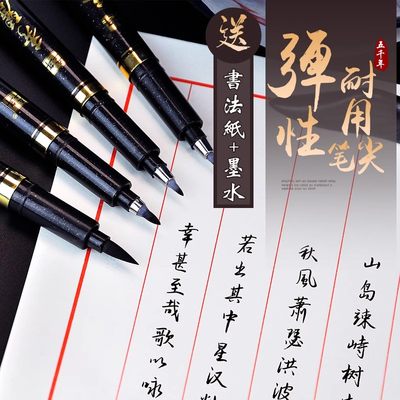 五千年
彈性
耐用
笔尖
送
書法紙+墨水
山岛竦峙树
秋風蕭瑟洪波
若出其中星汉
幸甚至哉歌以咏